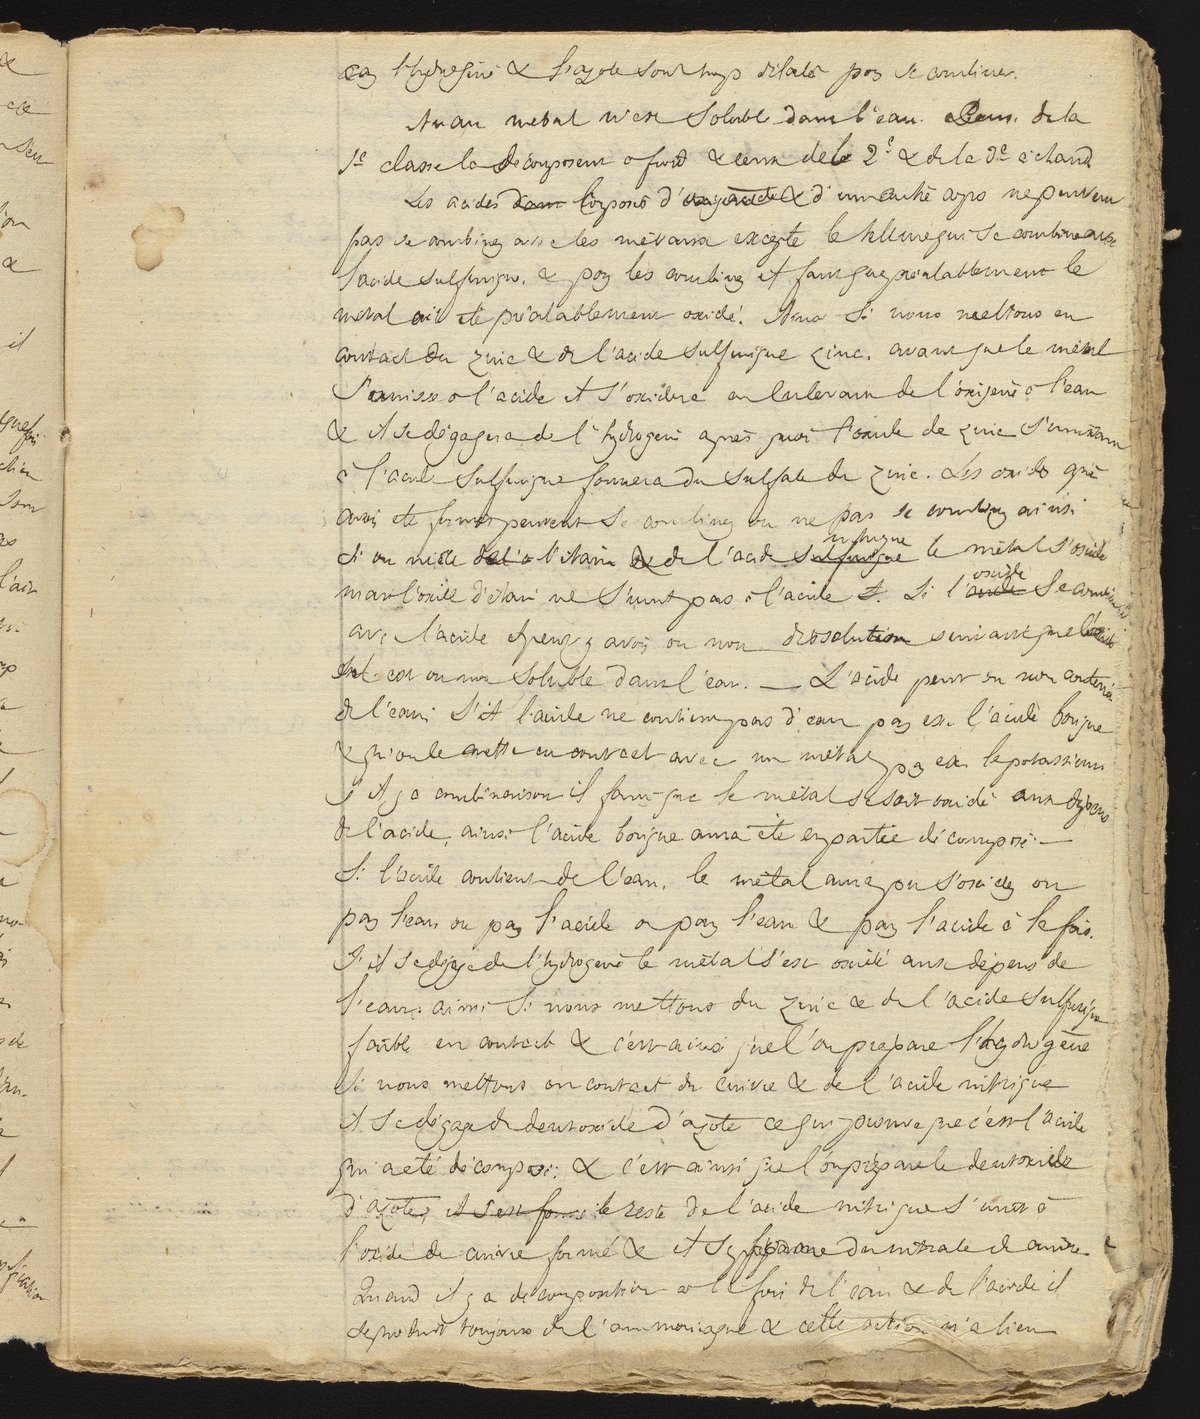 car l'hydrogène & l'azote sont trop dilatés pour se combiner.
Aucun métal n'est soluble dans l'eau. Ceux de la
1e classe la décomposent à froid & ceux de la 2e & de la 3e à chaud
Les acides dans composés d'oxigène & d'un autre corps ne peuvent
pas se combiner avec les métaux excepté le tellure qui se combine avec
l'acide sulfurique. & pour les combiner il faut que préalablement le
métal ait été préalablement oxidé. Ainsi si nous mettons en
contact du zinc & de l'acide sulfurique zinc. avant que le métal
s'unisse à l'acide il s'oxidera en enlevant de l'oxigène à l'eau
& il se dégagera de l'hydrogène après quoi l'oxide de zinc s'unissant
à l'acide sulfurique formera du sulfate de zinc. Les oxides qui
auront été formés peuvent se combiner ou ne pas se combiner ainsi
si on mêle de l'a l'étain & de l'acide sulfurique nitrique le métal s'oxide
mais l'oxide d'étain ne s'unit pas à l'acide. Si l'acide oxide se combine
avec l'acide il peut y avoir ou non dissolution suivant que l'oxide
sel est ou non soluble dans l'eau. — L'acide peut ou non contenir
de l'eau. Si l'acide ne contient pas d'eau par ex. l'acide borique
& qu'on le mette en contact avec un métal par ex. le potassium
s'il y a combinaison il faut que le métal se soit oxidé aux dépens
de l'acide, ainsi l'acide borique aura été en partie décomposé. —
Si l'acide contient de l'eau. le métal aura pu s'oxider ou
par l'eau ou par l'acide ou par l'eau & par l'acide à la fois.
S'il se dégage de l'hydrogène le métal s'est oxidé aux dépens de
l'eau. ainsi si nous mettons du zinc & de l'acide sulfurique
faible en contact & c'est ainsi que l'on prépare l'hydrogène
Si nous mettons en contact du cuivre & de l'acide nitrique
il se dégage du deutoxide d'azote ce qui prouve que c'est l'acide
qui a été décomposé. & c'est ainsi que l'on prépare le deutoxide
d'azote, il s'est formé le reste de l'acide nitrique s'unit à
l'oxide de cuivre formé & il se forme du nitrate de cuivre.
Quand il y a décomposition à la fois de l'eau & de l'acide il
se produit toujours de l'ammoniaque & cette action n'a lieu